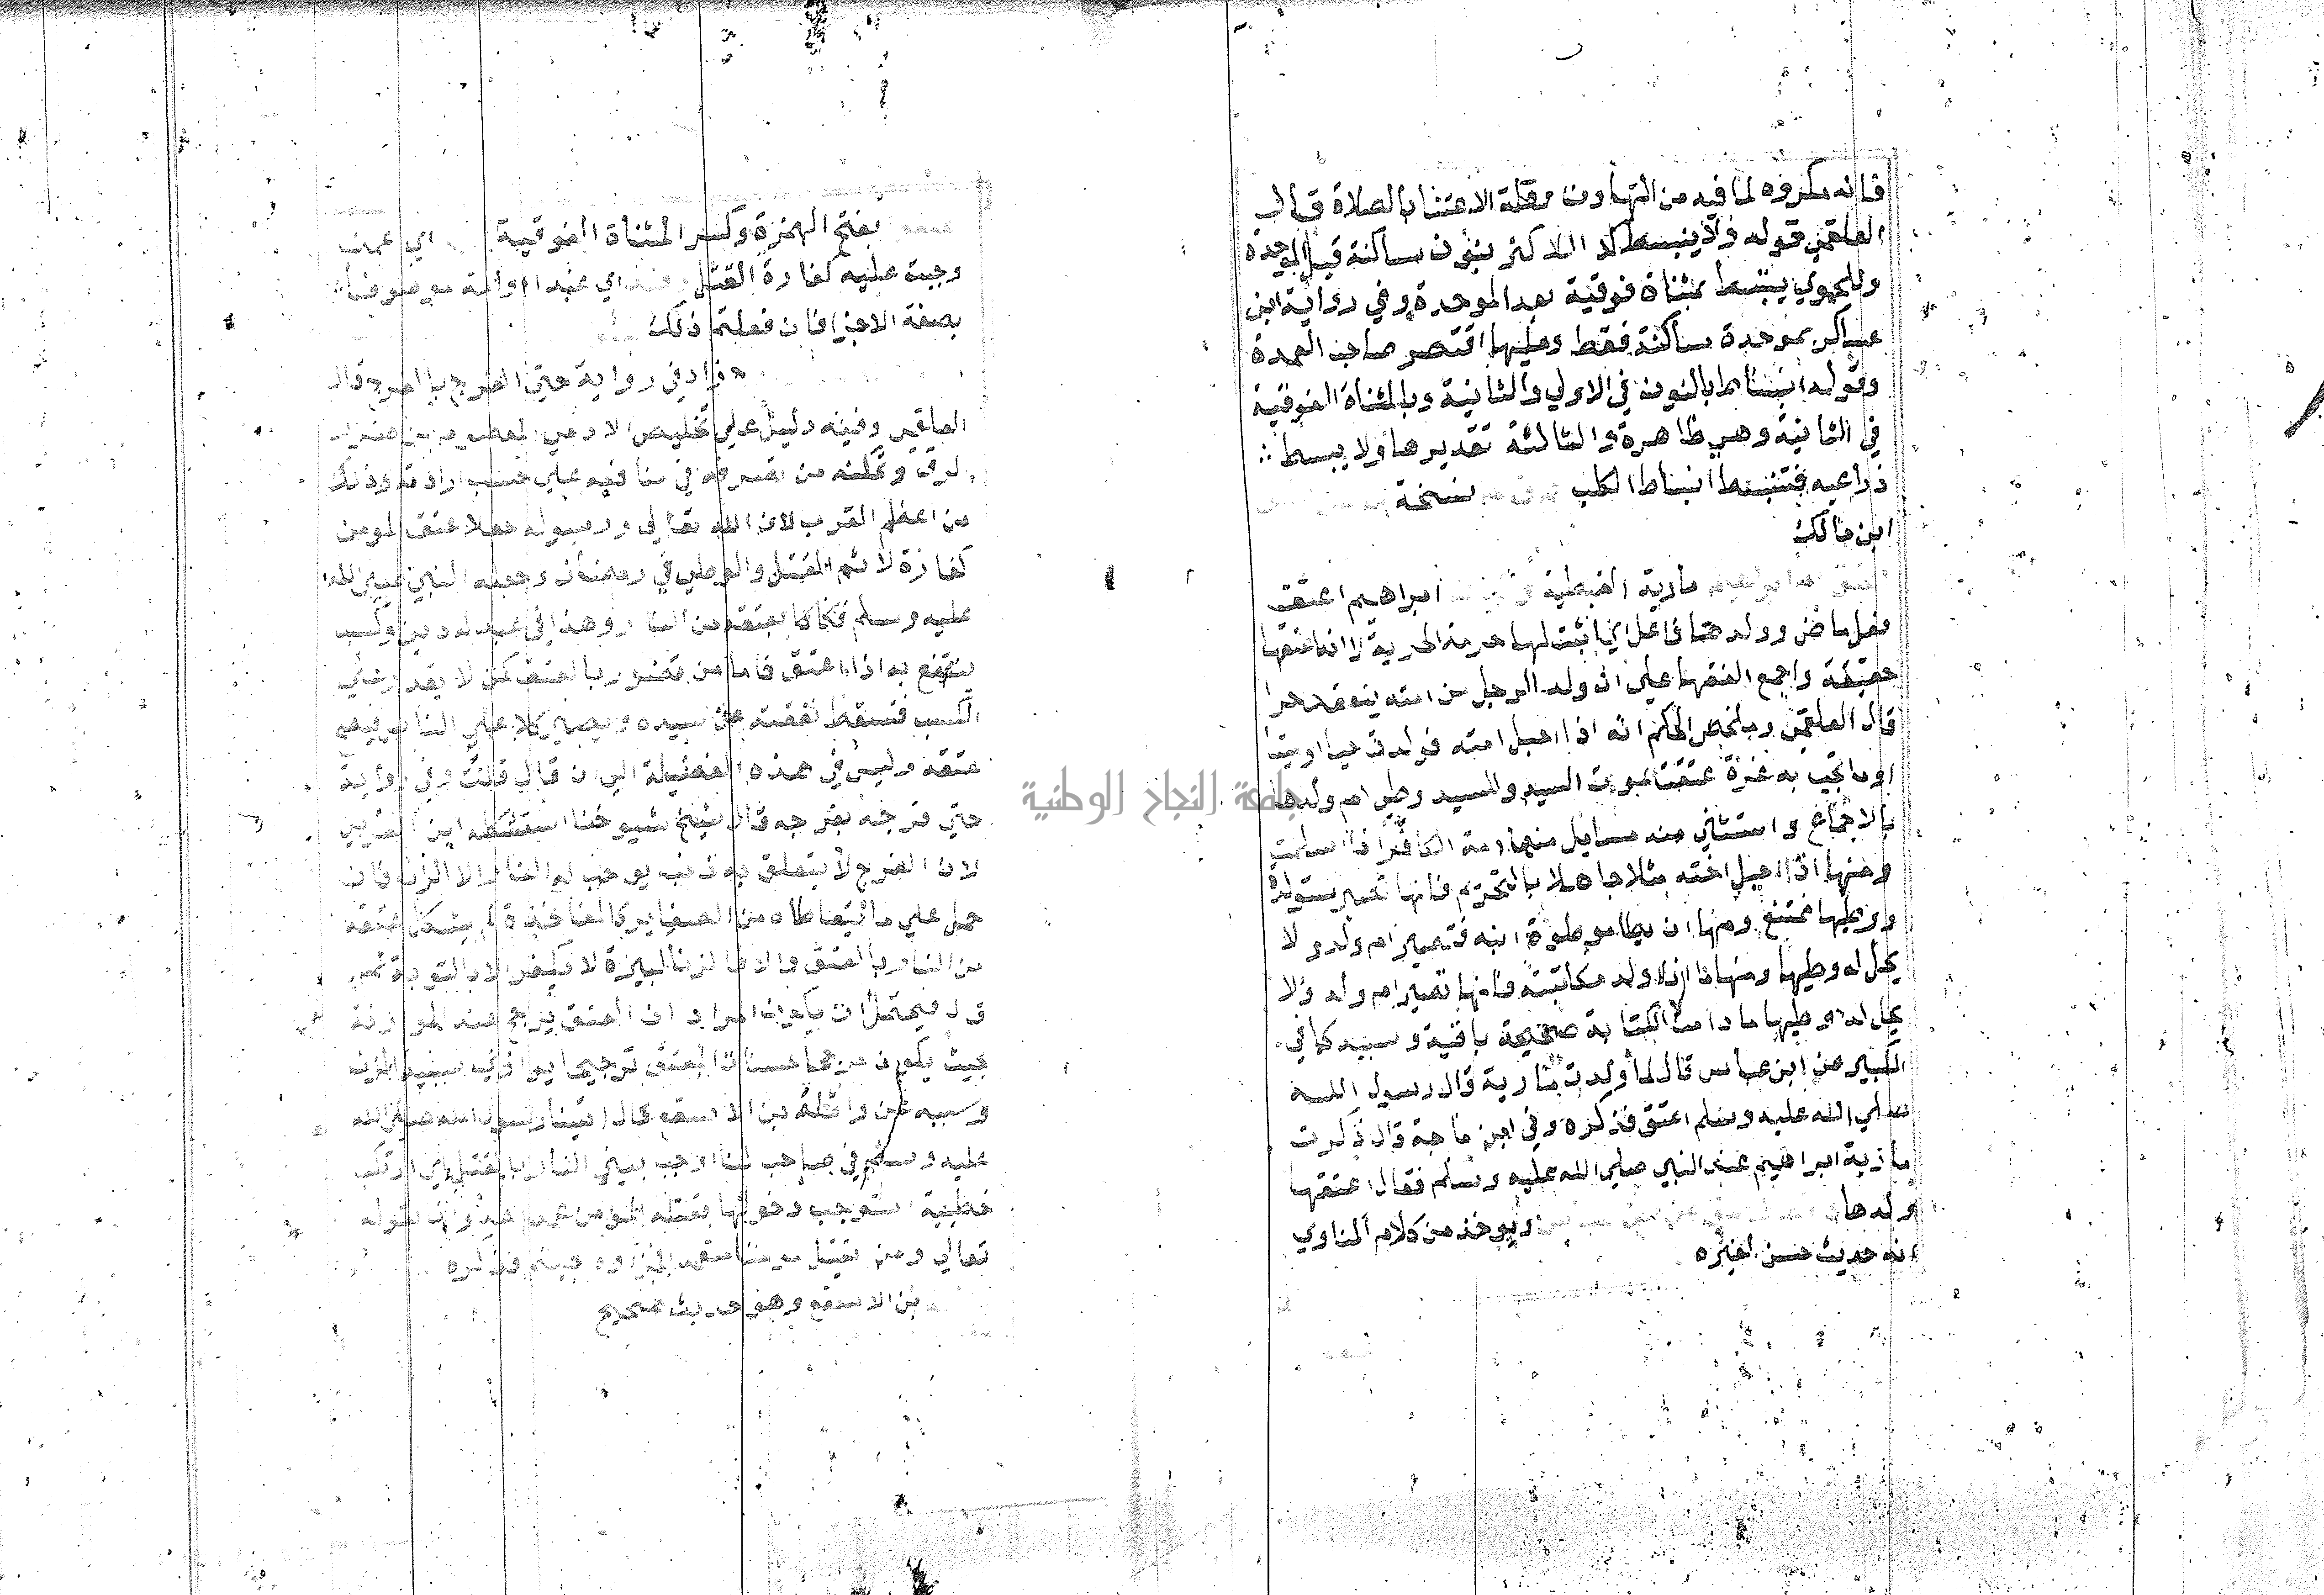 فانه مكروه لما فيه من التهاون وقلة الاعتنا بالصلاة قال
العلقمي قوله ولا ينبسط كذا للاكثر بنون ساكنة قبل الموحدة
وللحموي يبتسط بمثناة فوقية بعد الموحدة وفي رواية ابن
عساكر بموحدة ساكنة فقط وعليها اقتصر صاحب العمدة
وقوله انبساط بالنون في الاولي والثانية وبالمثناة الفوقية
في الثانية وهي ظاهرة والثالثة تقديرها ولا يبسط
ذراعيه فتنبسط انبساط الكلب نسخة
ابن مالك
مارية القبطية ابراهيم اعتق
فعل ماض وولدها فاعل اي اثبت لها حرمة الحرية لا انه اعتقها
حقيقة واجمع الفقها علي ان ولد الرجل من امته ينعقد حرا
قال العلقمي وملخص الحكم انه اذا احبل امته فولدت حيا او ميتا
او ما تجب به غرة عتقت بموت السيد وللسيد وطي ام ولدها
بالاجماع واستثني منه مسايل منها امة الكافر اذا اسلمت
ومنها اذا احبل اخته مثلا جاهلا بالتحريم فانها تصير مستولدة
ووطيها ممتنع ومنها ان يطا موطوة ابنه فتصير ام ولد ولا
يحل له وطيها ومنها اذا اولد مكاتبته فانها تصير ام ولد ولا
يحل له وطيها ما دامت الكتابة صحيحة باقية وسببه كما في
الكبير عن ابن عباس قال لما ولدت مارية قال رسول الله
صلي الله عليه وسلم اعتق فذكره وفي ابن ماجة قال ذكرت
مارية ام ابراهيم عند النبي صلي الله عليه وسلم فقال اعتقها
ولدها ويوخذ من كلام المناوي
انه حديث حسن لغيره
بفتح الهمزة وكسر المثناة الفوقية اي عمن
وجبت عليه كفارة القتل اي عبدا او امة موصوفا
بصفة الاجزا فان فعلتم ذلك
زاد في رواية حتي الفرج بالفرج قال
العلقمي وفيه دليل علي تخليص الادمي المعصوم من ضرر
الرق وتمكنه من تصرفه في منافعه علي حسب ارادته وذلك
من اعظم القرب لان الله تعالي ورسوله جعلا عتق المومن
كفارة لاثم القتل والوطي في رمضان وجعله النبي صلي الله
عليه وسلم فكاكا لمعتقه من النار وهذا في عبد له دين وكسب
ينتفع به اذا اعتق فاما من تضرر بالعتق كمن لا يقدر علي
الكسب فتسقط نفقته عن سيده ويصير كلا علي الناس فيصح
عتقه وليس فيه هذه الفضيلة الي ان قال قلت وفي رواية
حتي فرجه بفرجه قال شيخ شيوخنا استشكله ابن العربي
لان الفرج لا يتعلق به ذنب يوجب له النار الا الزنا فان
حمل علي ما يتعاطاه من الصغاير كالمفاخذة لم يشكل عتقه
من النار بالعتق والا فالزنا كبيرة لا تكفر الا بالتوبة ثم
قال فيحتمل ان يكون المراد ان العتق يرجح عند الموازنة
بحيث يكون مرجحا لحسنات المعتق ترجيحا يوازي سيية الزنا
وسببه عن واثلة بن الاسقع قال اتينا رسول الله صلي الله
عليه وسلم في صاحب لنا اوجب يعني النار بالقتل اي ارتكب
خطيية استوجب دخولها بقتله المومن عمدا عدوانا لقوله
تعالي ومن يقتل مومنا متعمدا فجزاوه جهنم فذكره
بن الاسقع وهو حديث صحيح
جامعة النجاح الوطنية